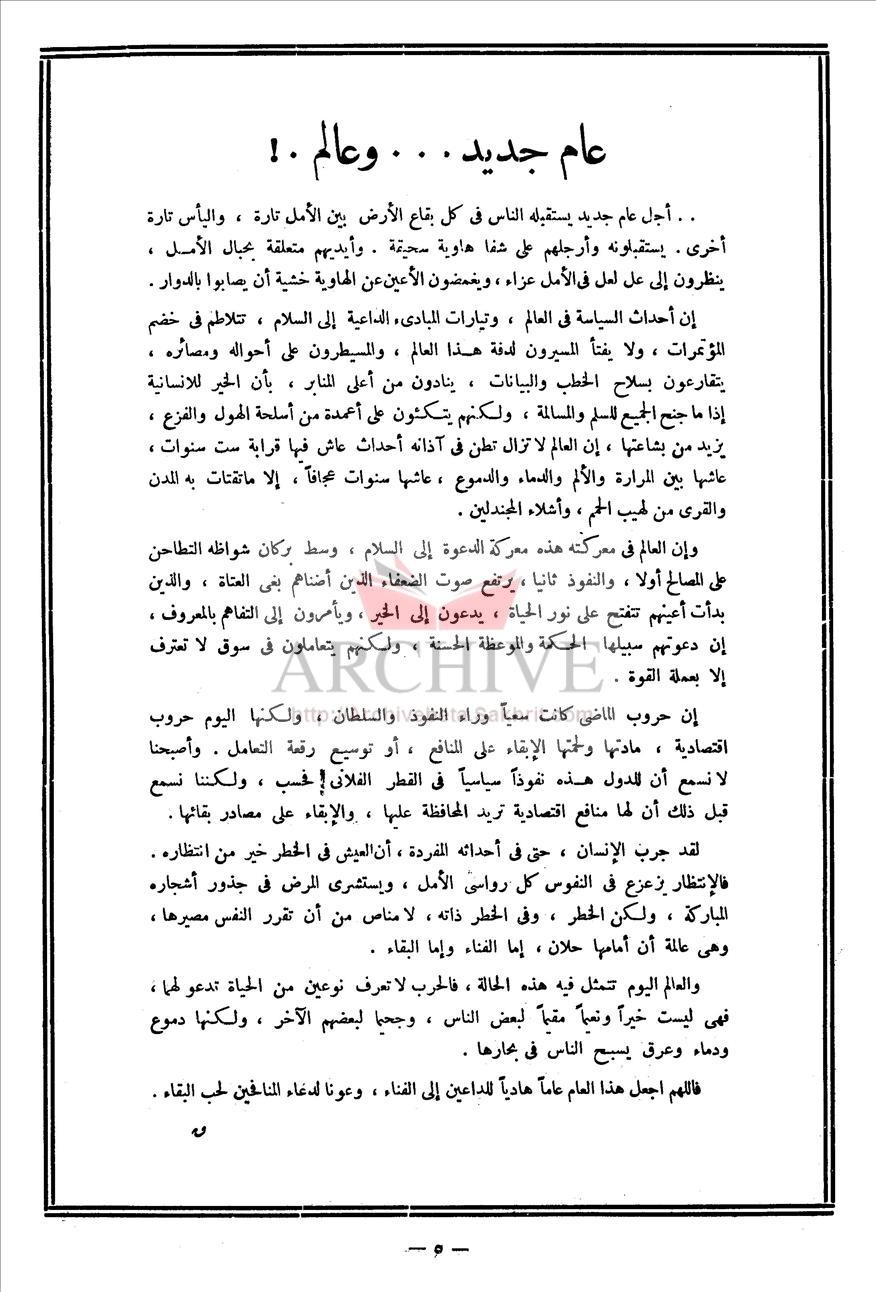 عام جديد . . . وعالم . !
. . أجل عام جديد يستقبله الناس فى كل بقاع الأرض بين الأمل تارة ، واليأس تارة
أخرى . يستقبلونه وأرجلهم على شفا هاوية سحيقة . وأيديهم متعلقة بحبال الأمــل ،
ينظرون إلى عل لعل فى الأمل عزاء ، ويغمضون الأعين عن الهاوية خشية أن يصابوا بالدوار .
إن أحداث السياسة فى العالم ، وتيارات المبادىء الداعية إلى السلام ، تتلاطم فى خضم
المؤتمرات ، ولا يفتأ المسيرون لدفة هــذا العالم ، والمسيطرون على أحواله ومصائره ،
يتقارعون بسلاح الخطب والبيانات ، ينادون من أعلى المنابر ، بأن الخير للانسانية
إذا ما جنح الجميع للسلم والمسالمة ، ولكنهم يتكئون على أعمدة من أسلحة الهول والفزع ،
يزيد من بشاعتها ، إن العالم لا تزال تطن فى آذانه أحداث عاش فيها قرابة ست سنوات ،
عاشها بين المرارة والألم والدماء والدموع ، عاشها سنوات عجافاً ، إلا ماتقتات به المدن
والقرى من لهيب الحمم ، وأشلاء المجندلين .
وإن العالم فى معركته هذه معركة الدعوة إلى السلام ، وسط بركان شواظه التطاحن
على المصالح أولا ، والنفوذ ثانيا ، يرتفع صوت الضعفاء الذين أضناهم بغى العتاة ، والذين
بدأت أعينهم تتفتح على نور الحياة ، يدعون إلى الخير ، ويأمرون إلى التفاهم بالمعروف ،
إن دعوتهم سبيلها الحكمة والموعظة الحسنة ، ولكنهم يتعاملون فى سوق لا تعترف
إلا بعملة القوة .
ARCHIVE
http://Archivebeta.Sakhrit.com
إن حروب الماضى كانت سعياً وراء النفوذ والسلطان ، ولكنها اليوم حروب
اقتصادية ، مادتها ولحمتها الإبقاء على المنافع ، أو توسيع رقعة التعامل . وأصبحنا
لا نسمع أن للدول هــذه نفوذاً سياسياً فى القطر الفلانى فحسب ، ولكننا نسمع
قبل ذلك أن لها منافع اقتصادية تريد المحافظة عليها ، والإبقاء على مصادر بقائها .
لقد جرب الإنسان ، حتى فى أحداثه المفردة ، أن العيش فى الخطر خير من انتظاره .
فالإنتظار يزعزع فى النفوس كل رواسى الأمل ، ويستشرى المرض فى جذور أشجاره
المباركة ، ولكن الخطر ، وفى الخطر ذاته ، لا مناص من أن تقرر النفس مصيرها ،
وهى عالمة أن أمامها حلان ، إما الفناء وإما البقاء .
والعالم اليوم تتمثل فيه هذه الحالة ، فالحرب لا تعرف نوعين من الحياة تدعو لهما ،
فهى ليست خيراً ونعيماً مقيماً لبعض الناس ، وجحيما لبعضهم الآخر ، ولكنها دموع
ودماء وعرق يسبح الناس فى بحارها .
فاللهم اجعل هذا العام عاماً هادياً للداعين إلى الفناء ، وعونا لدعاء المنافحين لحب البقاء .
ق
— ٥ —